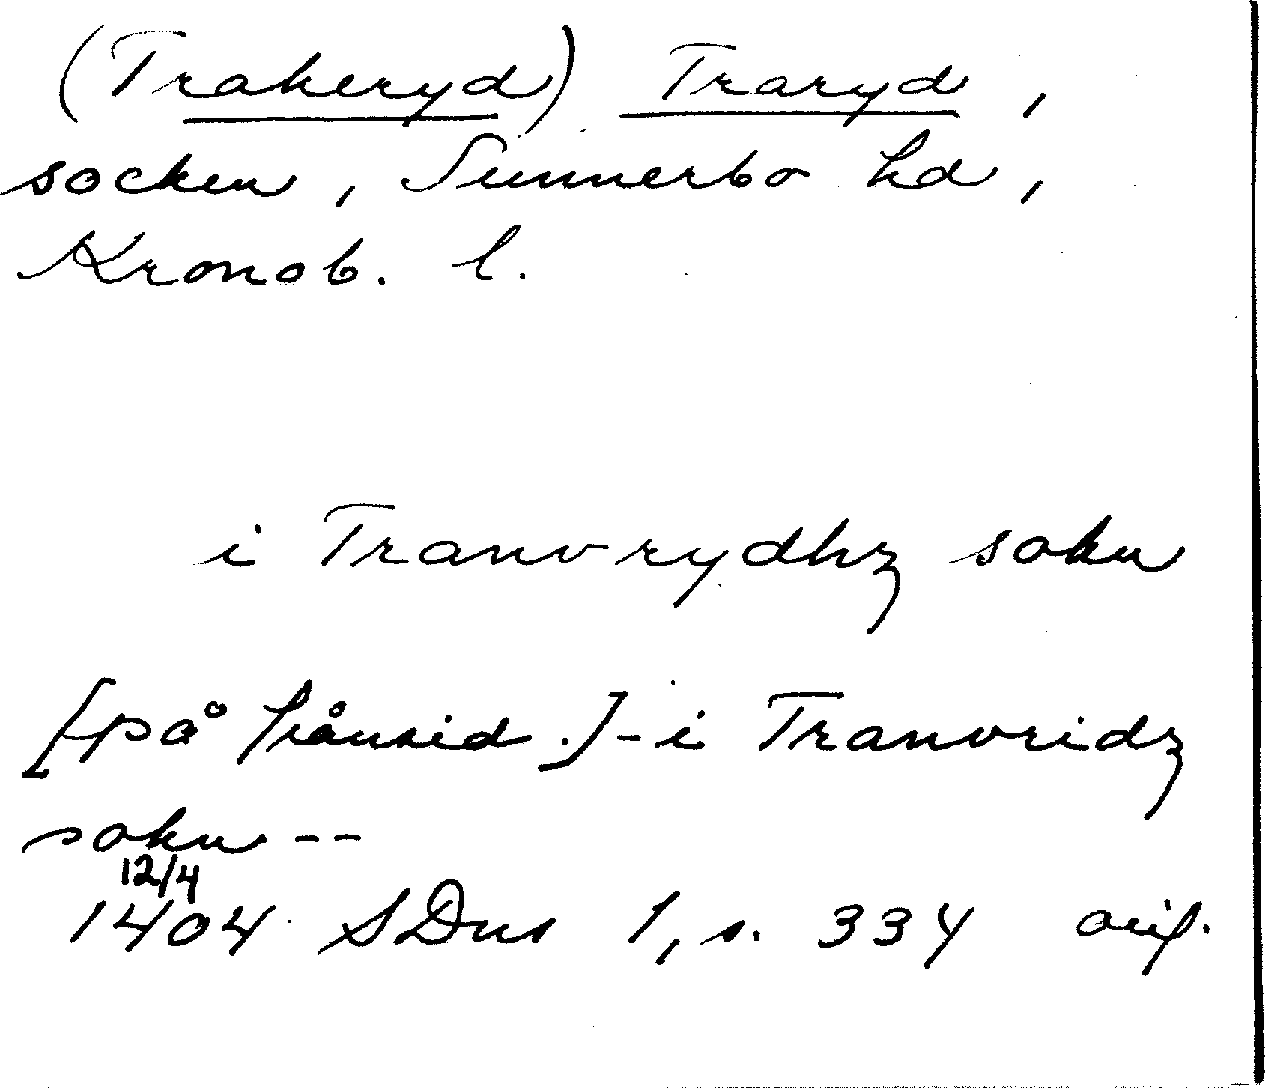 (Trakeryd) Traryd,
socken, Sunnerbo hd,
Kronob. l.
i Tranvrydhz sokn
[på frånsid.] - i Tranvridz
sokn --
12/4
1404 SDns 1, s. 334 orig.